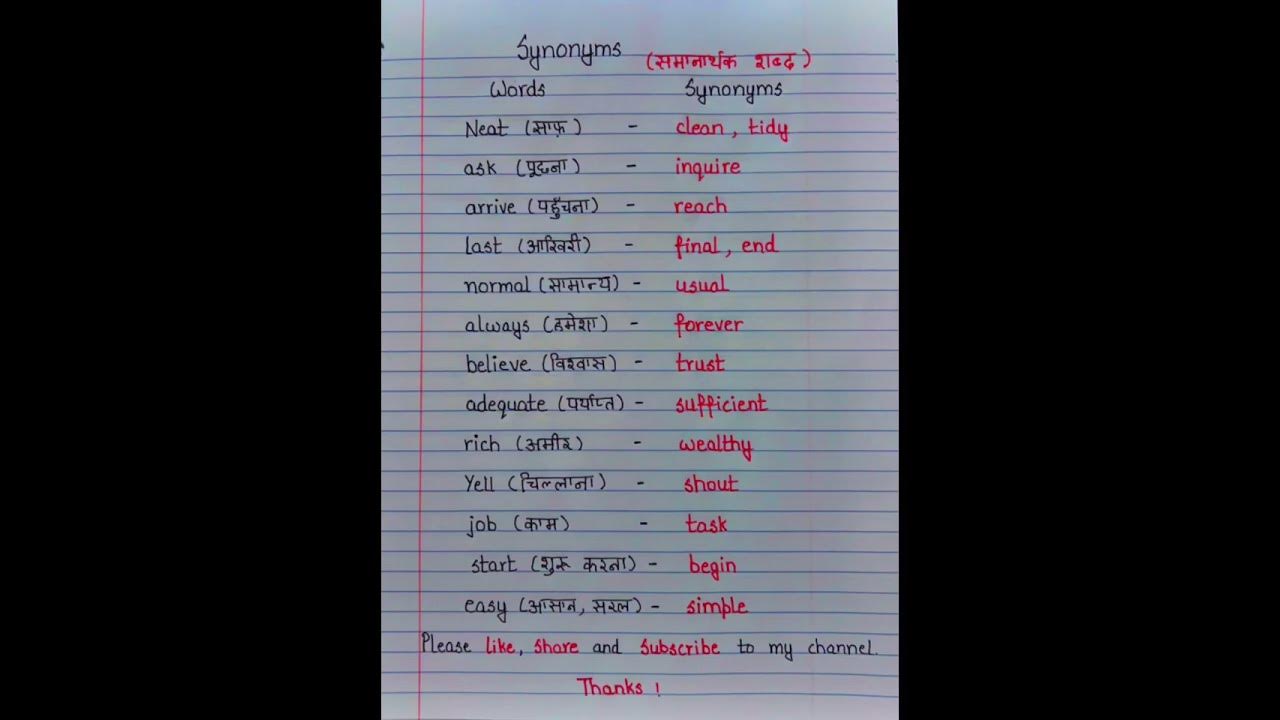 Synonyms (समानार्थक शब्द)
Words Synonyms
Neat (साफ़) - clean, tidy
ask (पूछना) - inquire
arrive (पहुँचना) - reach
Last (आखिरी) - final, end
normal (सामान्य) - usual
always (हमेशा) - forever
believe (विश्वास) - trust
adequate (पर्याप्त) - sufficient
rich (अमीर) - wealthy
Yell (चिल्लाना) - shout
job (काम) - task
start (शुरू करना) - begin
easy (आसान, सरल) - simple
Please like, share and subscribe to my channel.
Thanks !